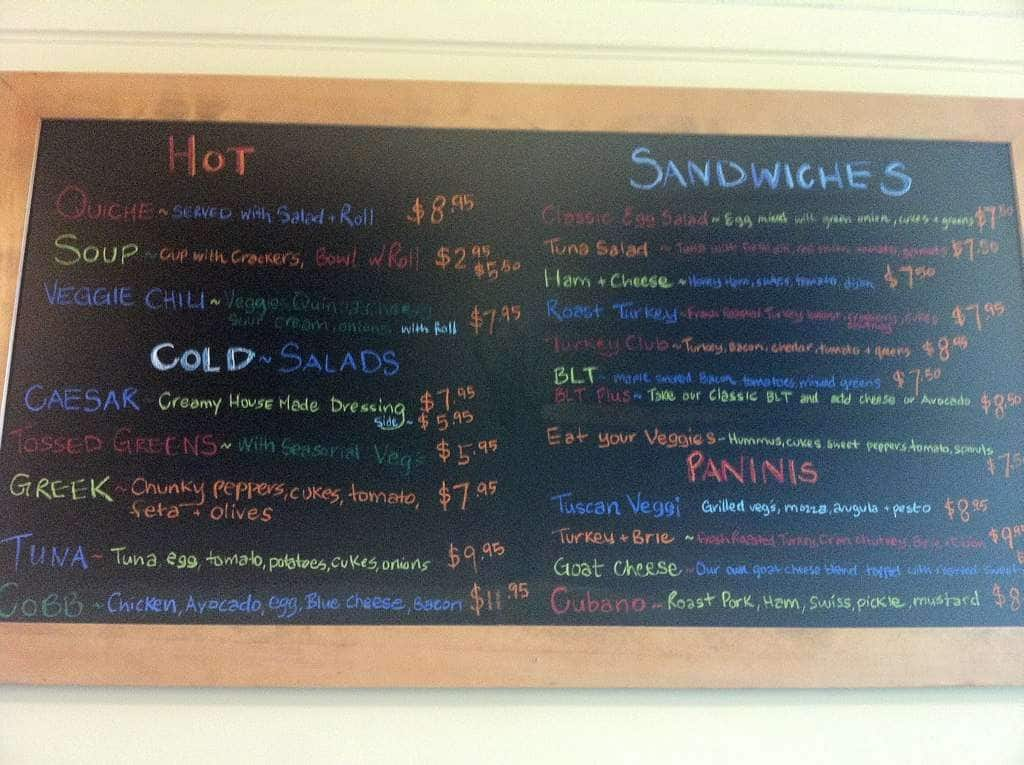 HOT
QUICHE ~ SERVED with Salad + Roll $8.95
SOUP ~ Cup with Crackers, Bowl w/Roll $2.95 $5.50
VEGGIE CHILI ~ Veggies,
Sour cream, onions, with Roll $7.95
COLD ~ SALADS
CAESAR Creamy House Made Dressing $7.95
side ~ $5.95
TOSSED GREENS ~ With Seasonal Veg's $5.95
GREEK ~ Chunky peppers, cukes, tomato, $7.95
feta + olives
TUNA ~ Tuna egg, tomato, potatoes, cukes, onions $9.95
COBB ~ Chicken, Avocado, egg, Blue cheese, Bacon $11.95
SANDWICHES
Classic Egg Salad ~ Egg mixed with green onion, cukes + greens $7.50
Tuna Salad ~ Tuna with red onion, tomato, $7.50
Ham + Cheese ~ Honey Ham, swiss, tomato, dijon $7.50
Roast Turkey ~ Fresh Roasted Turkey breast, cranberry, cukes $7.95
chutney
Turkey Club ~ Turkey, Bacon, chedar, tomato + greens $8.95
BLT ~ maple smoked Bacon, tomatoes, mixed greens $7.50
BLT Plus ~ Take our Classic BLT and add cheese or Avocado $8.50
Eat your Veggies - Hummus, cukes sweet peppers tomato, sprouts
PANINIS
Tuscan Veggi Grilled veg's, mozza, arugula + pesto $8.95
Turkey + Brie ~ Fresh Roasted Turkey, Cran chutney, Brie
Goat Cheese ~ Our own goat cheese blend topped with roasted sweet
Cubano ~ Roast Pork, Ham, Swiss, pickle, mustard $8